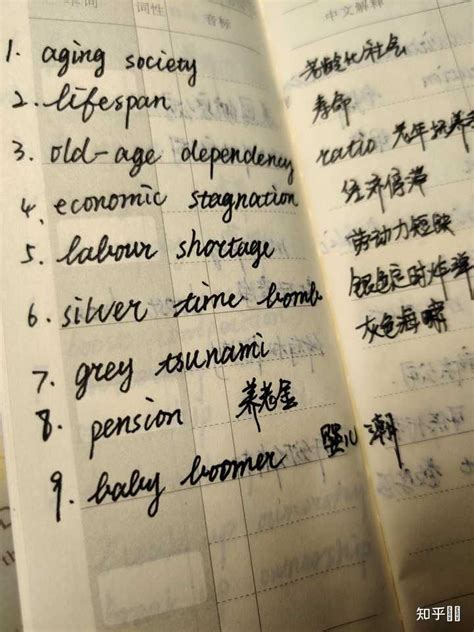 单词 词性 音标 中文解释
1. aging society 老龄化社会
2. lifespan 寿命
3. old-age dependency ratio 老年抚养
4. economic stagnation 经济停滞
5. labour shortage 劳动力短缺
6. silver time bomb 银色定时炸弹
7. grey tsunami 灰色海啸
8. pension 养老金
9. baby boomer 婴儿潮
知乎